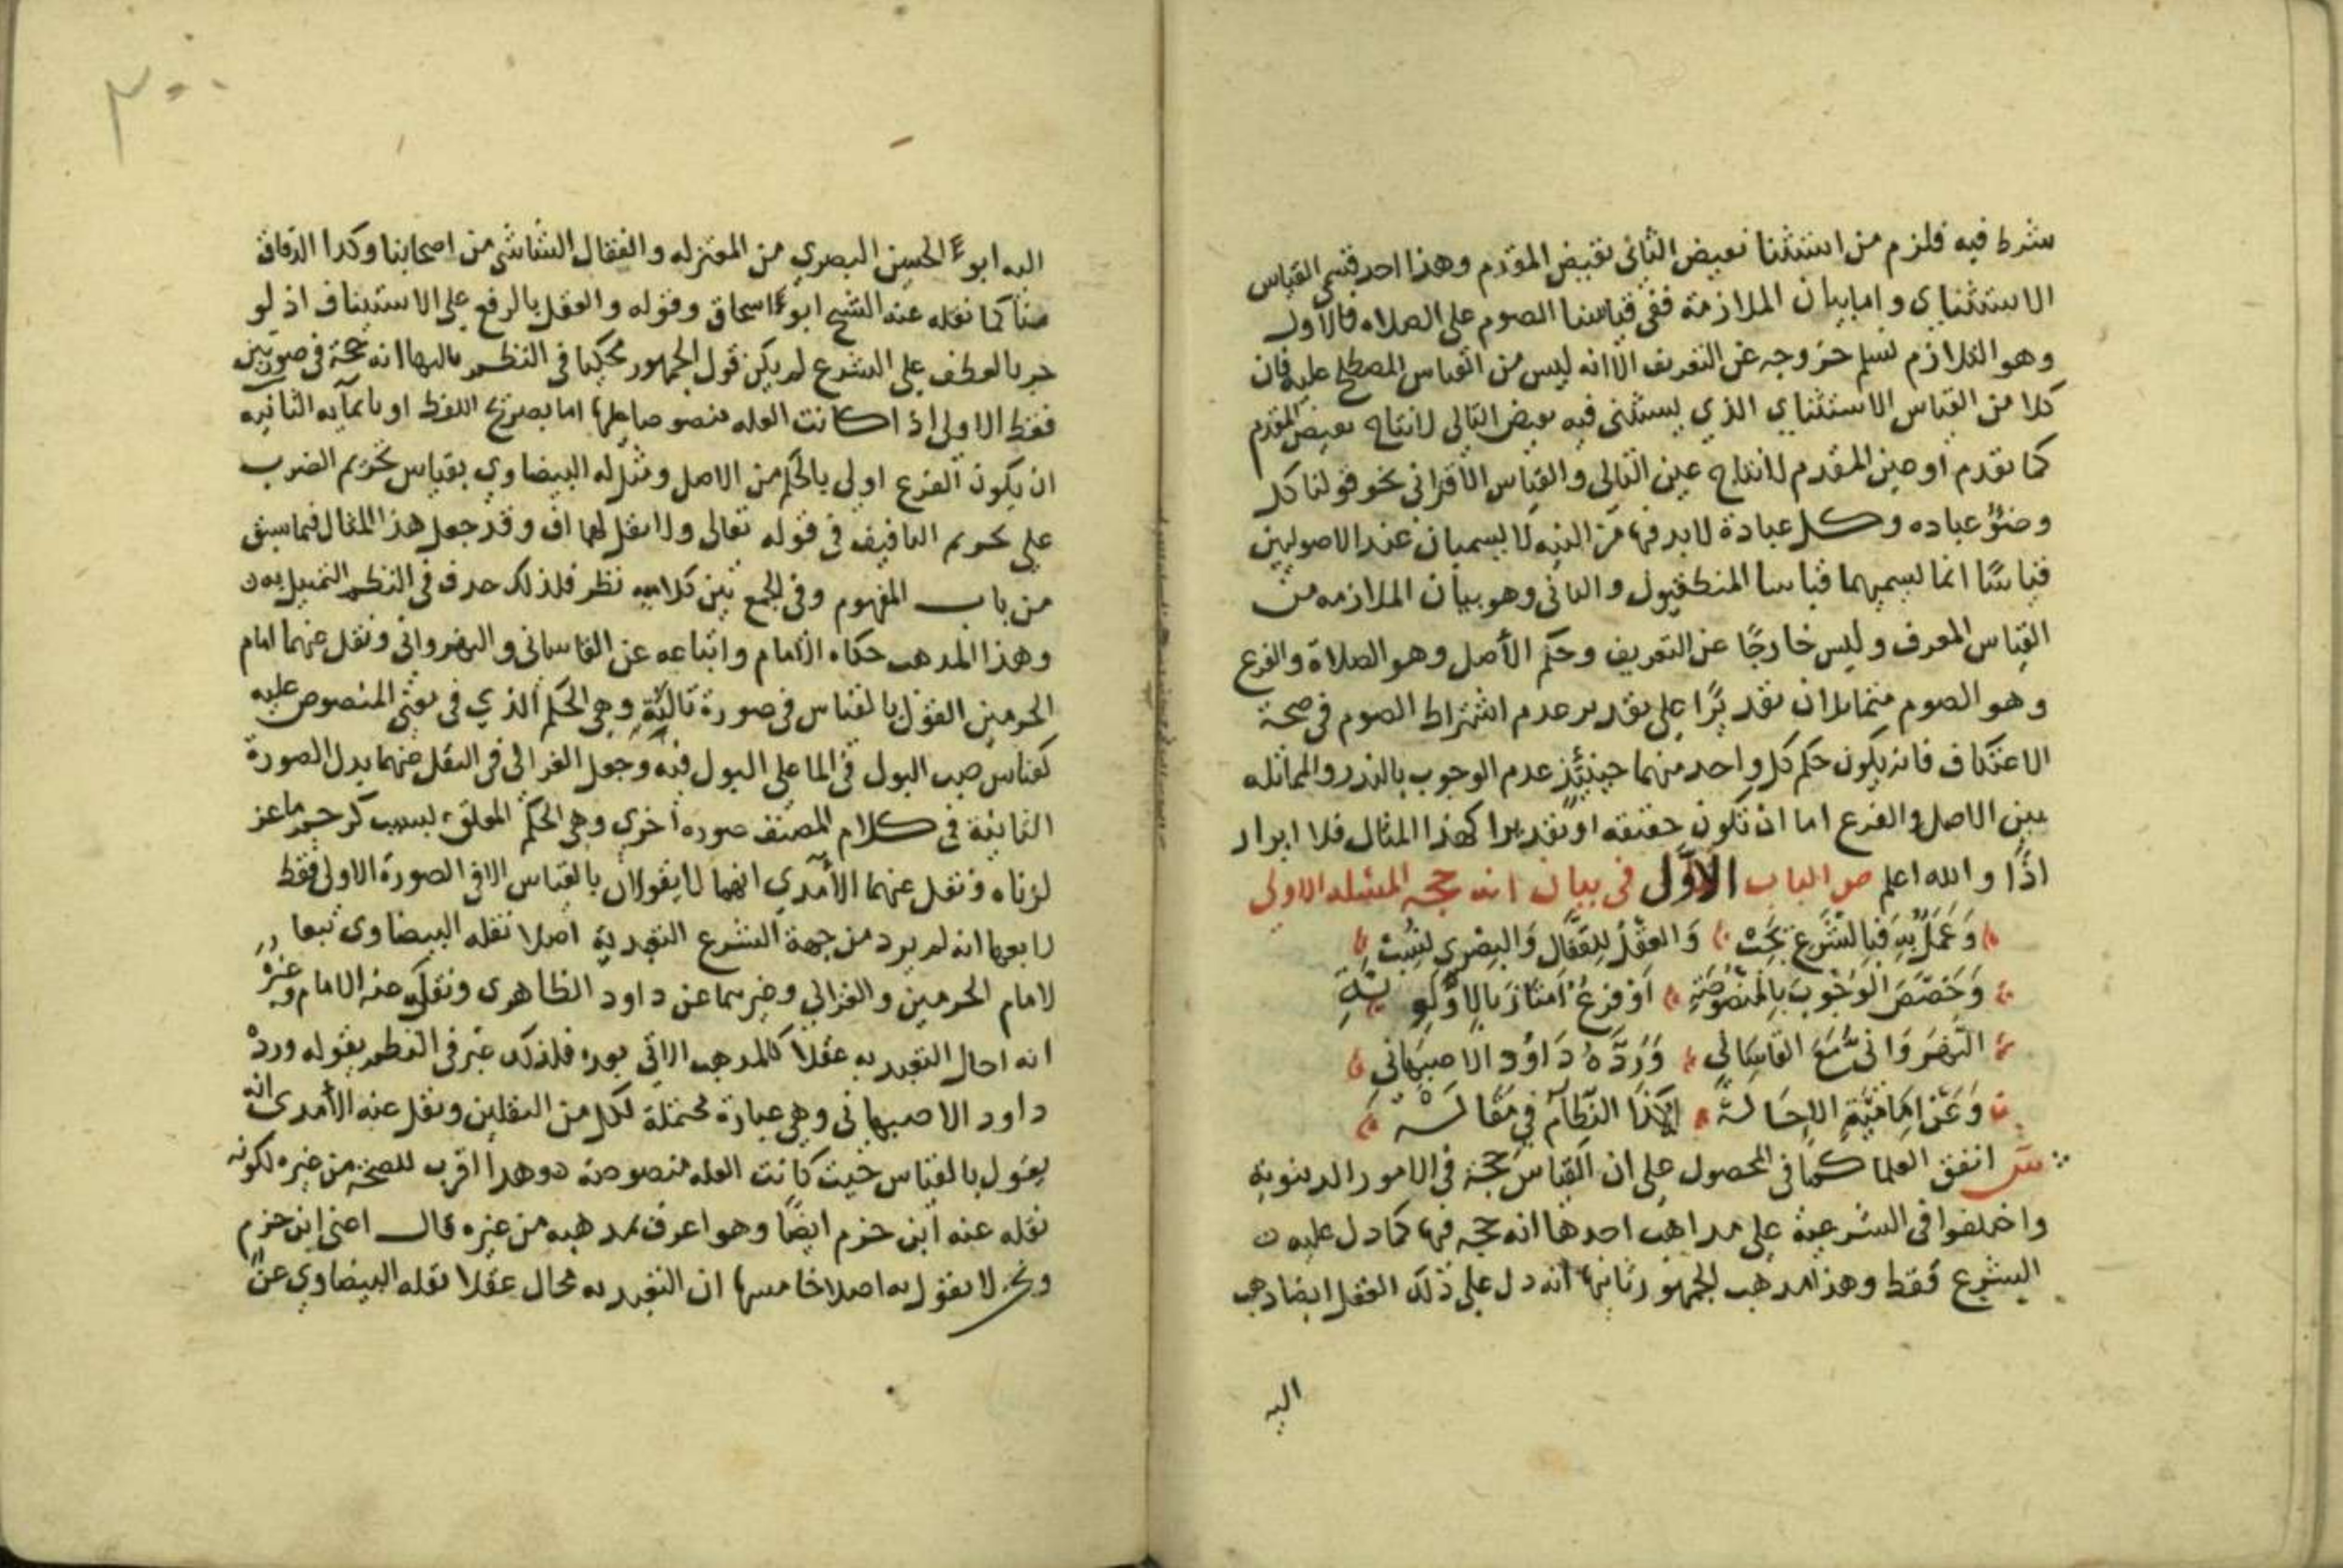 شرط فيه فلزم من استثنا نقيض الثاني نقيض المقدم وهذا احد قسمي القياس
الاستثناي واما بيان الملازمة ففي قياسنا الصوم على الصلاه فالاول
وهو التلازم نسلم خروجه عن التعريف الا انه ليس من القياس المصطلح عليه فان
كلا من القياس الاستثناي الذي يستثنى فيه نقيض التالي لانتاج نقيض المقدم
كما تقدم او عين المقدم لانتاج عين التالي والقياس الاقتراني نحو قولنا كل
وضوء عباده وكل عبادة لابد فيها من النيه لا يسميان عند الاصوليين
قياسًا انما يسميهما قياسا المنطقيون والثاني وهو بيان الملازمه من
القياس المعرف وليس خارجًا عن التعريف وحكم الأصل وهو الصلاة والفرع
وهو الصوم متماثلان تقديرًا على تقدير عدم اشتراط الصوم في صحة
الاعتكاف فانه يكون حكم كل واحد منهما حينئذ عدم الوجوب بالنذر والمماثله
بين الاصل والفرع اما ان تكون حقيقه او تقديرا كهذا المثال فلا ايراد
اذًا والله اعلم ص الباب الأول في بيان انه حجه المسئله الاولى
وَعَمَلٌ بِهِ فَبِالشَّرْعِ بُحِثْ وَالعَقْلُ لِلقَفَّالِ وَالبِصْري نُسِبْ
وَخَصَّصَ الوُجُوبَ بِالمَنْصُوصَةِ اَوْ فرعٌ امتَازَ بِالاَوْلَوِيَّةِ
النَّهْرَوَانى مَعَ القَاسَانِي وَرَدَّهُ دَاوُد الاصبَهَاني
وَعَن اِمَامِيَّةٍ الاِحَالَهْ كَذَا النَّظَّامُ فِي مَقَالَهْ
ش اتفق العلما كما في المحصول على ان القياس حجة في الامور الدنيوية
واختلفوا في الشرعية على مذاهب احدها انه حجه فيها كما دل عليه
الشرع فقط وهذا مذهب الجمهور ثانيها انه دل على ذلك العقل ايضا ذهب
اليه
٣٠٠
اليه ابو الحسين البصري من المعتزله والقفال الشاشي من اصحابنا وكذا الدقاق
منا كما نقله عنه الشيخ ابو اسحاق وقوله والعقل بالرفع على الاستيناف اذ لو
جر بالعطف على الشرع لم يكن قول الجمهور محكيا في النظم ثالثها انه حجة في صورتين
فقط الاولى اذا كانت العله منصوصا عليها اما بصريح اللفظ او بايمآيه الثانيه
ان يكون الفرع اولى بالحكم من الاصل ومثل له البيضاوي بقياس تحريم الضرب
على تحريم التافيف في قوله تعالى ولا تقل لهما اف وقد جعل هذا المثال فيما سبق
من باب المفهوم وفي الجمع بين كلاميه نظر فلذلك حذف في النظم التمثيل به
وهذا المذهب حكاه الامام واتباعه عن القاساني والنهرواني ونقل عنهما امام
الحرمين القول بالقياس في صورة ثالثة وهي الحكم الذي في معنى المنصوص عليه
كقياس صب البول في الما على البول فيه وجعل الغزالي في النقل عنهما بدل الصورة
الثانية في كلام المصنف صوره أخرى وهي الحكم المعلق بسبب كرجم ماعز
لزناه ونقل عنهما الآمدي انهما لا يقولان بالقياس الا في الصورة الاولى فقط
رابعها انه لم يرد من جهة الشرع التعبد به اصلا نقله البيضاوي تبعا
لامام الحرمين والغزالي وغيرهما عن داود الظاهري ونقل عنه الامام وغيره
انه احال التعبد به عقلا كالمذهب الاتي بعده فلذلك عبر في النظم بقوله وردْه
داود الاصبهاني وهي عبارة محتملة لكل من النقلين ونقل عنه الآمدي انه
يقول بالقياس حيث كانت العله منصوصة وهذا اقرب للصحة من غيره لكونه
نقله عنه ابن حزم ايضًا وهو اعرف بمذهبه من غيره قال اعني ابن حزم
ونحن لا نقول به اصلا خامسها ان التعبد به محال عقلا نقله البيضاوي عن